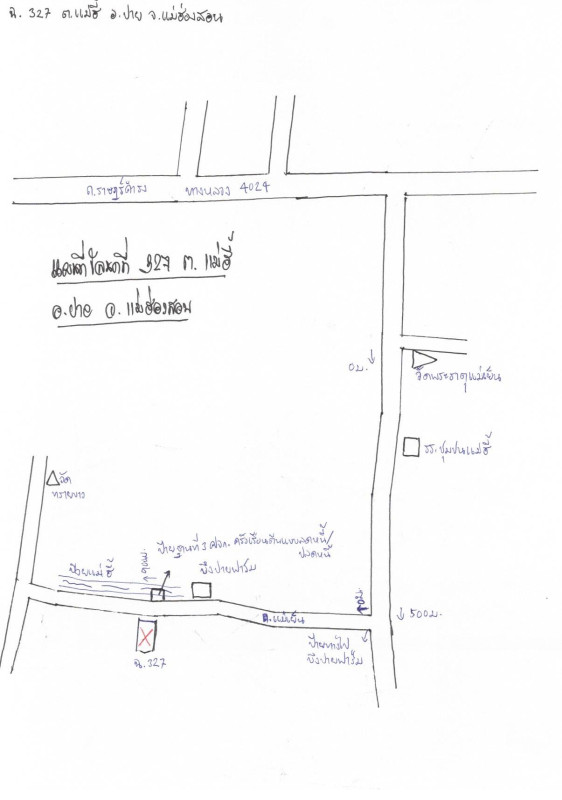 ฉ. 327 ต.แม่ฮี้ อ.ปาย จ.แม่ฮ่องสอน
ถ.ราษฎร์ดำรง ทางหลวง 4024
แผนที่โฉนดที่ 327 ต. แม่ฮี้
อ.ปาย จ. แม่ฮ่องสอน
0ม.
วัดพระธาตุแม่เย็น
รร.ชุมชนแม่ฮี้
วัด
ทรายขาว
ป้าย ฐานที่ 3 ศจก. ครัวเรือนต้นแบบลดหนี้/
ปลดหนี้
บึงปายฟาร์ม
ห้วยแม่ฮี้
ถ.แม่เย็น
500ม.
ป้ายทางไป
บึงปายฟาร์ม
ฉ. 327